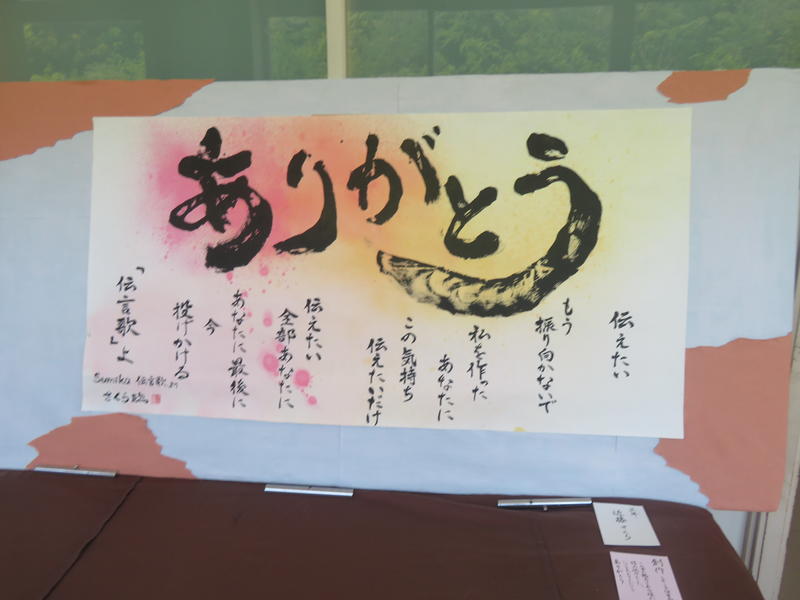 ありがとう
伝えたい
もう
振り向かないで
私を作った
あなたに
この気持ち
伝えたいだけ
伝えたい
全部あなたに
あなたに最後に
今
投げかける
「伝言歌」よ
Sumika 伝言歌より
さくら
創作